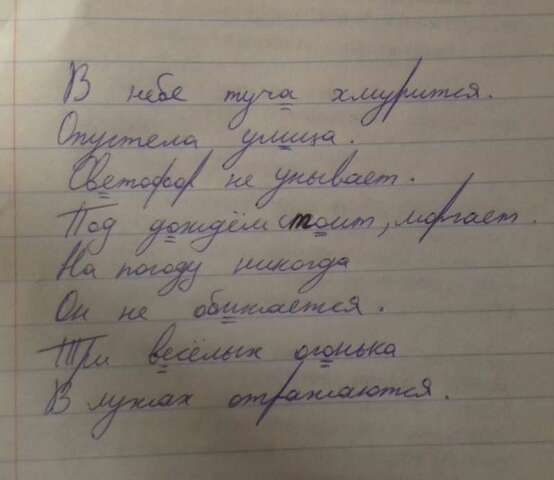 В небе туча хмурится.
Опустела улица.
Светофор не унывает.
Под дождём стоит, моргает.
На погоду никогда
Он не обижается.
Три весёлых огонька
В лужах отражаются.